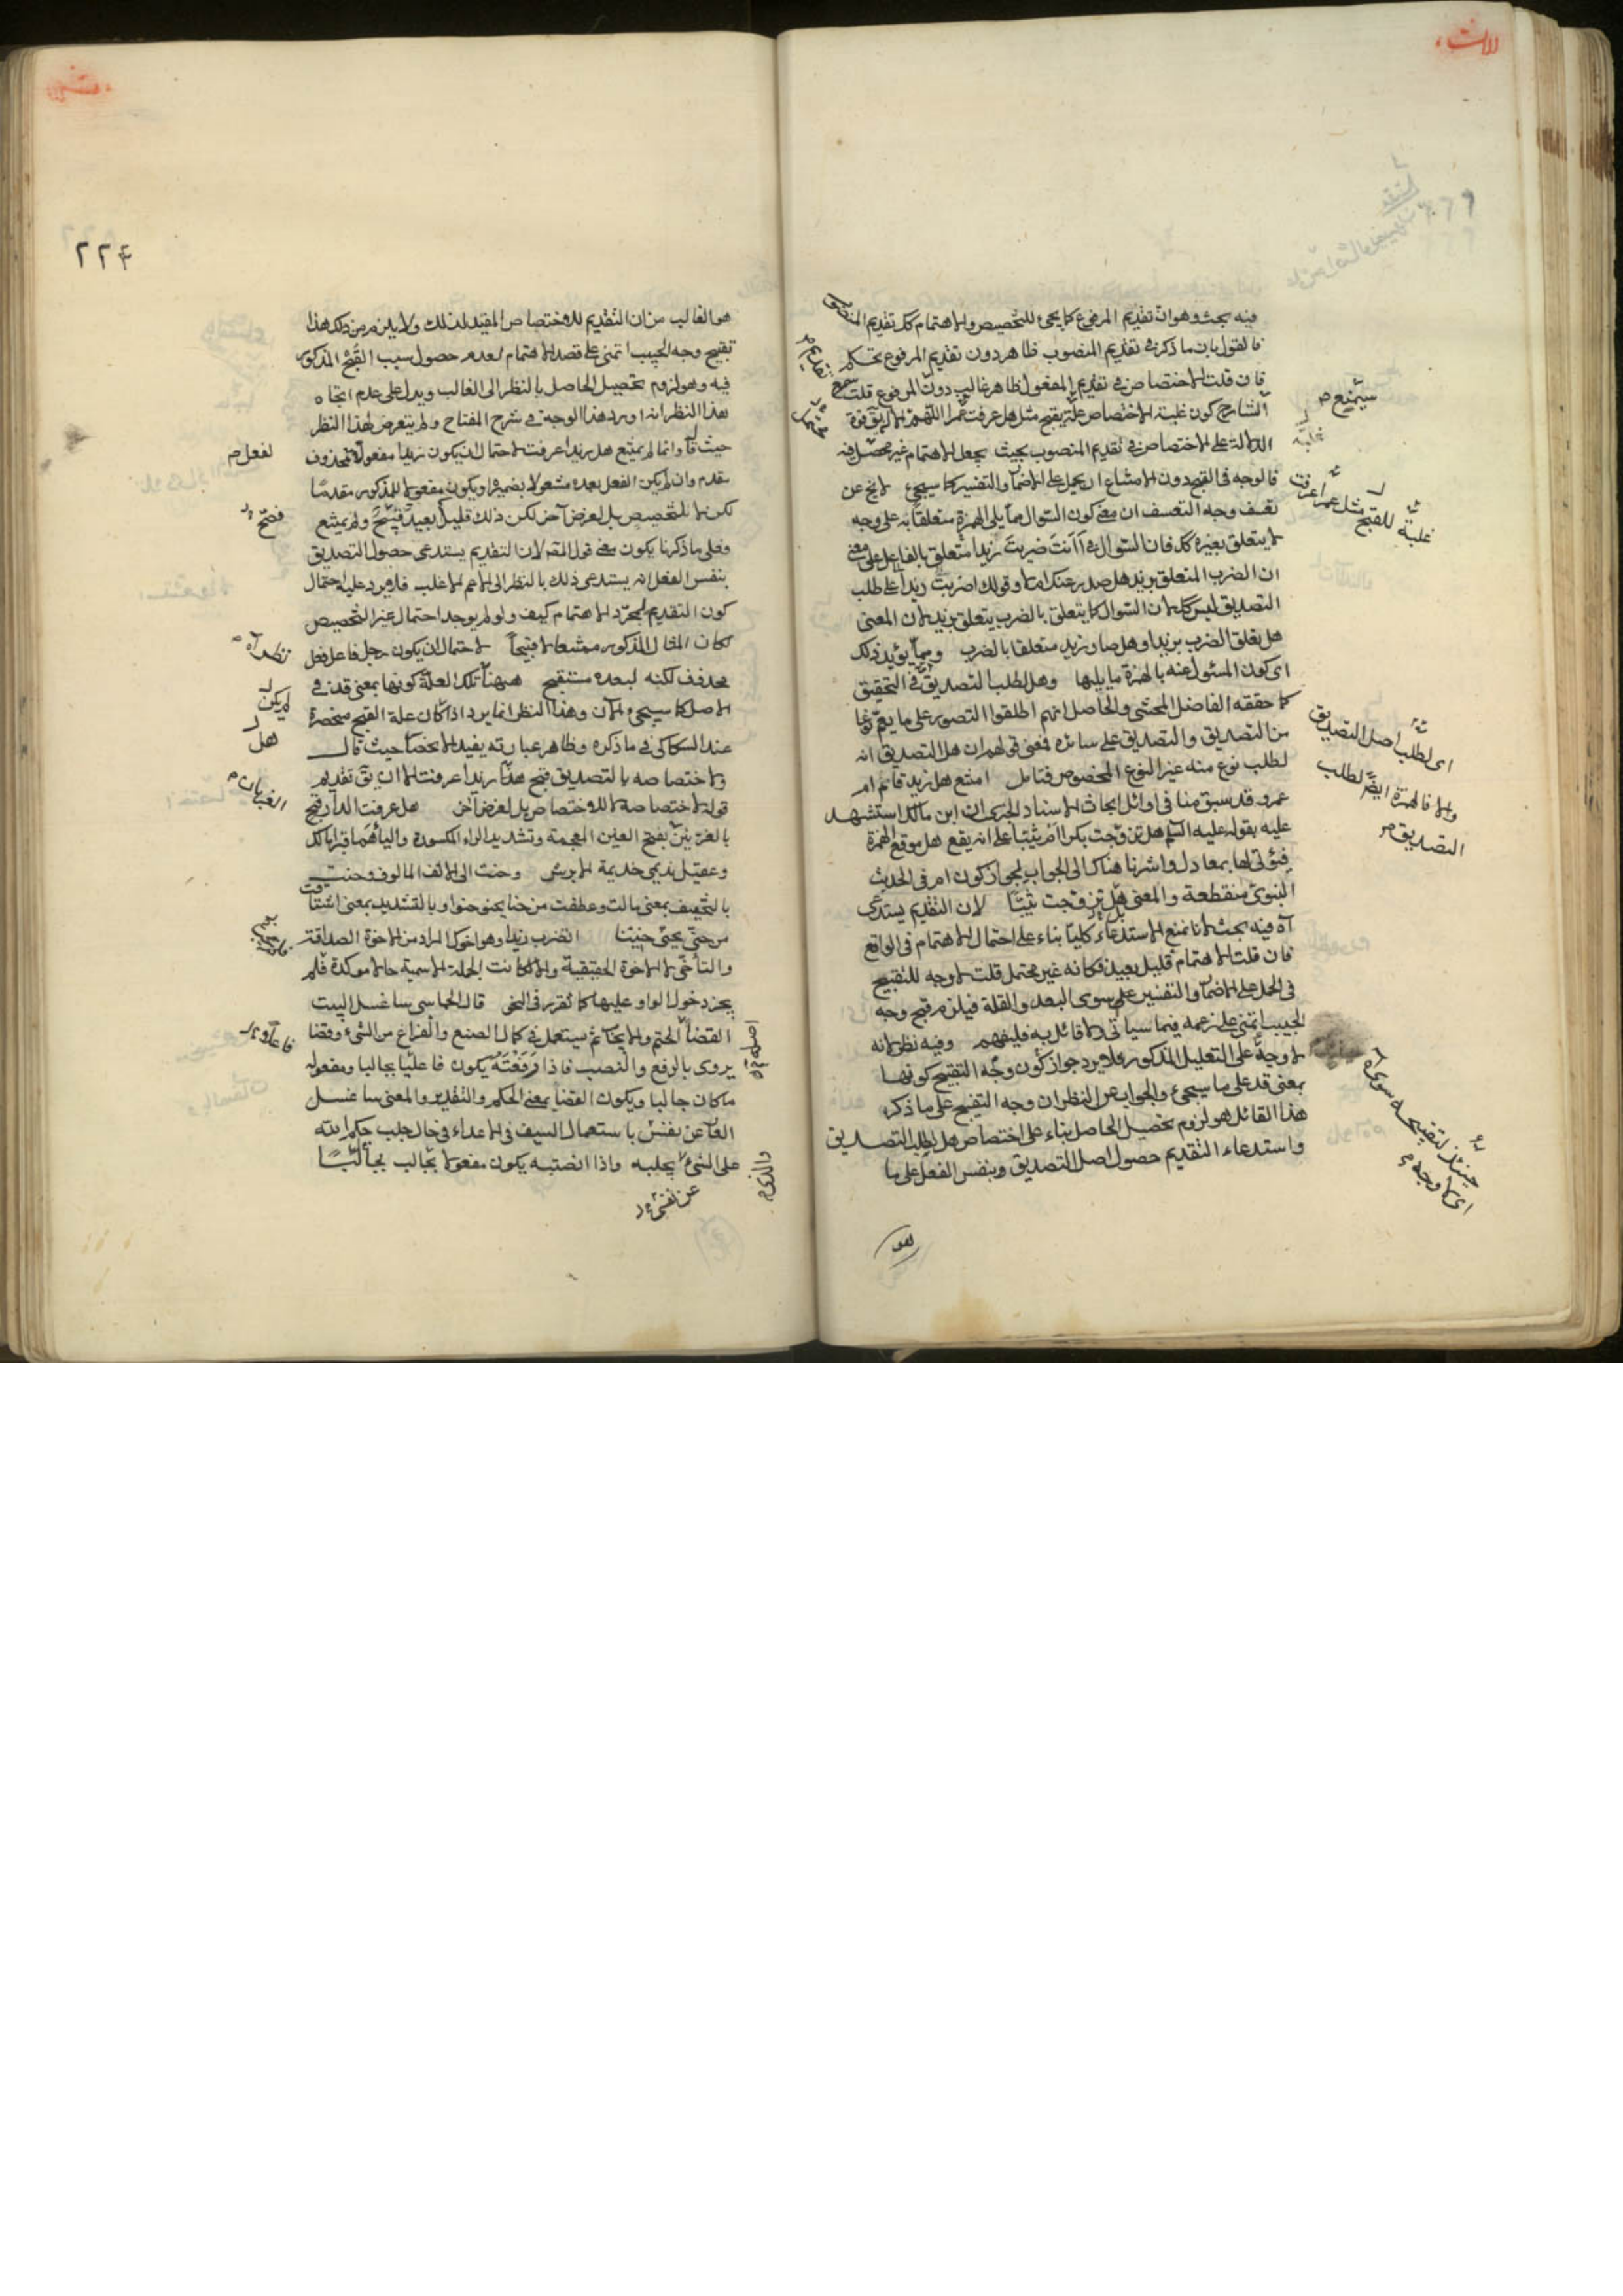 فيه بحث وهو ان تقديم المرفوع كما يجئ للتخصيص والاهتمام كك تقديم المنصوب
فالقول بان ما ذكر في تقديم المنصوب ظاهر دون تقديم المرفوع تحكم
فان قلت الاختصاص في تقديم المفعول ظاهر غالب دون المرفوع قلت
الشارح كون غلبة الاختصاص علة يقبح مثل هل عرفت عمرا اللهم الا
الدالة على الاختصاص في تقديم المنصوب بحيث يجعل الاهتمام غير
فالوجه في القبح دون الامتناع ان يحمل على الاضمار والتفسير كما سيجئ لا يخ عن
تعسف وجه التعسف ان معنى كون السوال عما يلي الهمزة متعلقا به على وجه
لا يتعلق بغيره كك فان السوال في أأنت ضربت زيدا متعلق بالفاعل على معنى
ان الضرب المتعلق بزيد هل صدر عنك ام لا وقولك اضربت زيدا على طلب
التصديق ليس كك لان السوال كما يتعلق بالضرب يتعلق بزيد لان المعنى
هل تعلق الضرب بزيد او هل صار زيد متعلقا بالضرب ومما يؤيد ذلك
اى كون المسئول عنه بالهمزة ما يليها وهل لطلب التصديق في التحقيق
كما حققه الفاضل المحشى والحاصل انهم اطلقوا التصور على ما يعم نوعا
من التصديق والتصديق على سائره فمعنى قولهم ان هل التصديق انه
لطلب نوع منه غير النوع المخصوص فتامل امتنع هل زيد قائم ام
عمرو قد سبق منا في اوائل ابحاث الاسناد الخبرى ان ابن مالك استشهد
عليه بقوله عليه السلم هل تزوجت بكرا ام ثيبا على انه يقع هل موقع الهمزة
فيؤتى لها بمعادل واشرنا هناك الى الجواب لجواز كون ام في الحديث
النبوى منقطعة والمعنى بل هل تزوجت ثيبا لان التقديم يستدعى
آه فيه بحث لانا نمنع الاستدعاء كليا بناء على احتمال الاهتمام في الواقع
فان قلت الاهتمام قليل بعيد فكانه غير محتمل قلت لا وجه للتقبيح
في الحمل على الاضمار والتفسير على سوى البعد والقلة فيلزم قبح وجه
الحبيب اتمنى على زعمه فيما سياتى ولا قائل به فليفهم وفيه نظر لانه
لا وجه على التعليل المذكور فلا يرد جواز كون وجه التقبيح كونها
بمعنى قد على ما سيجئ والجواب عن النظر ان وجه التقبيح على ما ذكره
هذا القائل هو لزوم تحصيل الحاصل بناء على اختصاص هل لطلب التصديق
واستدعاء التقديم حصول اصل التصديق وبنفس الفعل على ما
سيمنع
غلبة
غلبة للقبح مثل عمرا عرفت
اى لطلب اصل التصديق
والا فالهمزة ايضا لطلب
التصديق
حينئذ لتقبيحه سوى
اى لا وجه
هو
٢٢٤
هو الغالب من ان التقديم للاختصاص المقيد لذلك ولا يلزم من ذلك هذا
تقبيح وجه الحبيب اتمنى على قصد الاهتمام لعدم حصول سبب القبح المذكور
فيه وهو لزوم تحصيل الحاصل بالنظر الى الغالب ويدل على عدم اتجاه
هذا النظر انه اورد هذا الوجه في شرح المفتاح ولم يتعرض لهذا النظر
حيث قال وانما لم يمتنع هل زيدا عرفت لاحتمال ان يكون زيدا مفعولا لمحذوف
مقدم وان لم يكن الفعل بعده مشغولا بضميره او يكون مفعولا للمذكور مقدما
لكن لا للتخصيص بل لغرض آخر لكن ذلك قليل بعيد فقبح ولم يمتنع
وعلى ما ذكرنا يكون معنى قول المص لان التقديم يستدعى حصول التصديق
بنفس الفعل انه يستدعى ذلك بالنظر الى الاعم الاغلب فلا يرد عليه احتمال
كون التقديم لمجرد الاهتمام كيف ولو لم يوجد احتمال غير التخصيص
لكان المثال المذكور ممتنعا لا قبيحا لاحتمال ان يكون رجل فاعل فعل
محذوف لكنه لبعده مستقبح ههنا تلك العلة كونها بمعنى قد في
الاصل كما سيجئ الآن وهذا النظر انما يرد اذا كان علة القبح منحصرة
عند السكاكى في ما ذكره وظاهر عبارته يفيد الانحصار حيث قال
ولاختصاصه بالتصديق قبح هل زيدا عرفت الا ان يق تقديم
قوله لاختصاصه لا للاختصاص بل لغرض آخر هل عرفت الدار قبح
بالغريين بفتح الغين المعجمة وتشديد الراء المكسورة والياء هما قبرا مالك
وعقيل نديمى جذيمة الابرش وحنت الى الالف المالوف وحنت
بالتخفيف بمعنى مالت وعطفت من حنا يحنو حنوا وبالتشديد بمعنى اشتاقت
من حن يحن حنينا اتضرب زيدا وهو اخوك المراد من الاخوة الصداقة
والتآخى لا الاخوة الحقيقية والا لكانت الجملة الاسمية حالا موكدة فلم
يجز دخول الواو عليها كما تقرر في النحو قال الحماسى ساغسل البيت
القضاء الحتم والايجاب ثم يستعمل في كمال الصنع والفراغ من الشئ وقضا
يروى بالرفع والنصب فاذا رفعته يكون فاعليا بجالبا ومفعوله
ما كان جالبا ويكون القضا بمعنى الحكم والتقدير والمعنى ساغسل
العار عن نفسى باستعمال السيف في الاعداء في حال جلب حكم الله
على الشئ يجلبه واذا انصتبه يكون مفعولا بجالب
لفعل
لم يكن
هل
الغريان
عن نفسى
والذى